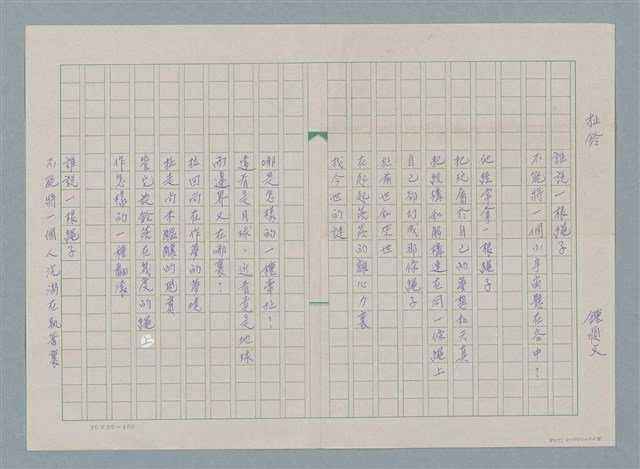 扯鈴
鍾順文
誰說一根繩子
不能將一個小宇宙懸在空中?
他經常拿一根繩子
把玩屬於自己的夢想和天真
把結構和解構連在同一條繩上
自己卻幻成那條繩子
扯前世和來世
在起起落落的離心力裏
找今世的謎
哪是怎樣的一種牽扯?
遠看是月球,近看竟是地球
而邊界又在哪裏?
拉回尚在作夢的夢境
扯走尚未醞釀的現實
管它旋鈴落在幾度的繩上
作怎樣的一種翻滾
誰說一根繩子
不能將一個人沉溺在執著裏
20×20=400